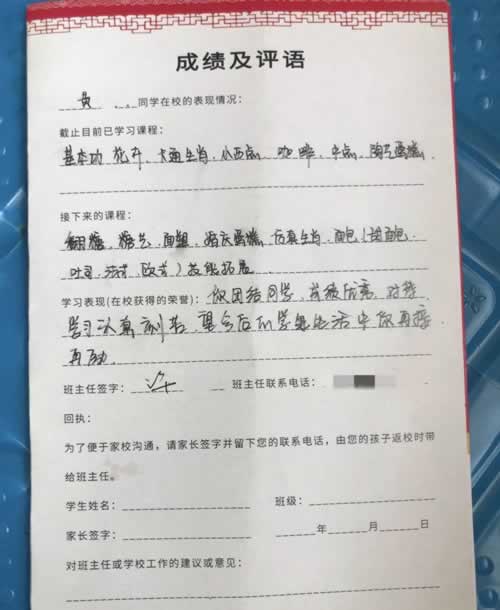 成绩及评语
黄 同学在校的表现情况：
截止目前已学习课程：
基本功、花卉、卡通生肖、小西点、咖啡、中点、陶艺蛋糕、
接下来的课程：
翻糖、糖艺、面塑、婚庆蛋糕、仿真生肖、面包(甜面包
吐司、法式、欧式)技能拓展
学习表现(在校获得的荣誉)：你团结同学、成绩优秀、对待
学习认真刻苦、望今后的学生生活中你再接
再励。
班主任签字： 班主任联系电话：
回执：
为了便于家校沟通，请家长签字并留下您的联系电话，由您的孩子返校时带
给班主任。
学生姓名： 班级：
家长签字： 年 月 日
对班主任或学校工作的建议或意见：